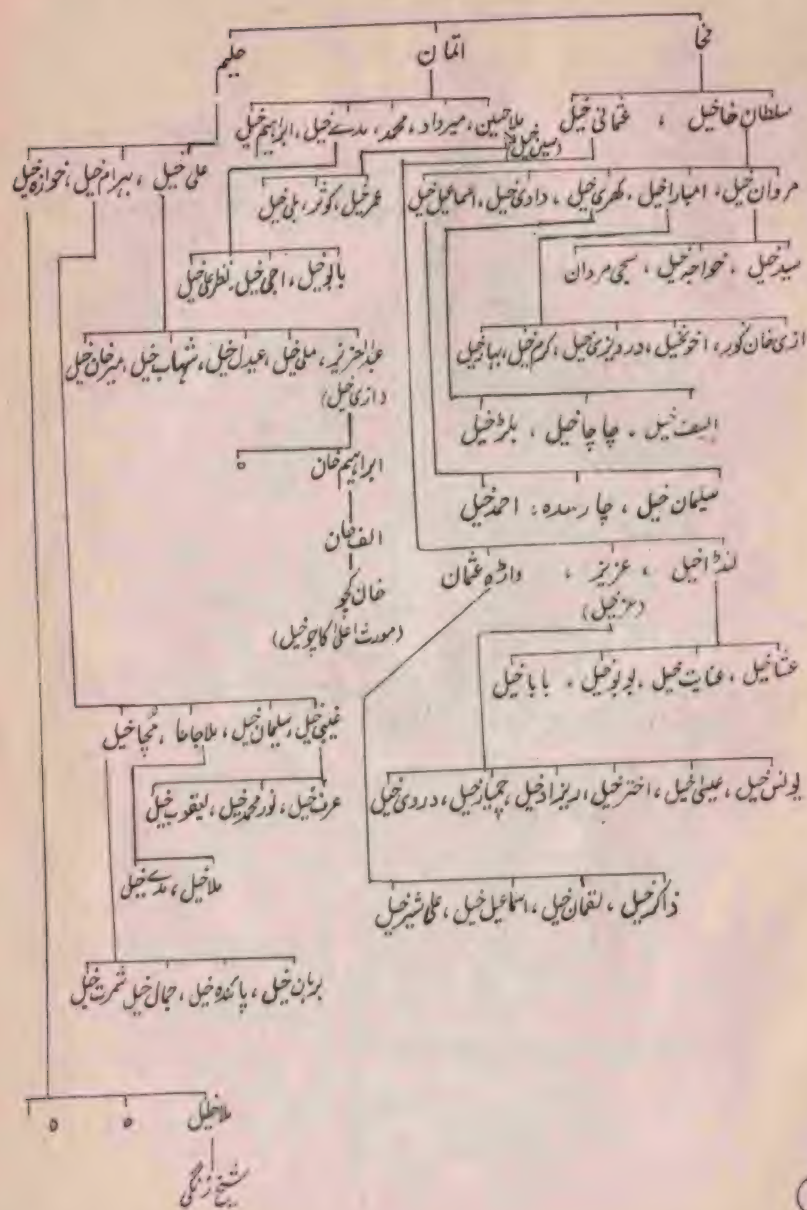 نحا اتمان حلیم
سلطان خاخیل ، عثمانی خیل
ملا حسین ، میرداد ، محمد ، مدے خیل ، ابراہیم خیل
(حسین خیل)
علی خیل ، بہرام خیل ، خوازہ خیل
مردان خیل ، امباراخیل ، کھری خیل ، دادی خیل ، اسماعیل خیل
عمر خیل ، کوثر ، بلی خیل
سید خیل ، خواجہ خیل ، سچی مردان
بابو خیل ، اجی خیل ، نظر علی خیل
ازی خان کور ، اخونخیل ، درویزی خیل ، کرم خیل ، بہا خیل
عبدالعزیز ، ملی خیل ، عیدل خیل ، شہاب خیل ، میر خان خیل
(ازی خیل)
الیف خیل ۔ چاچا خیل ، بلڑ خیل
ابراہیم خان ه
سلیمان خیل ، چارسدہ ، احمد خیل
الف خان
خان کچو
(مورث اعلیٰ کاچو خیل)
لنڈا خیل ، عزیز ، واڑہ عثمان
(عزخیل)
عشا خیل ، عنایت خیل ، بوبو خیل ، بابا خیل
غیبی خیل ، سلیمان خیل ، ملاجاعا ، مُچا خیل
یونس خیل ، عیسیٰ خیل ، اختر خیل ، ریزاد خیل ، جمباز خیل ، دروی خیل
عرف خیل ، نور محمد خیل ، یعقوب خیل
ملا خیل ، مدے خیل
ذاکر خیل ، لقمان خیل ، اسماعیل خیل ، علی شیر خیل
برہان خیل ، پائندہ خیل ، جمال خیل شمرت خیل
ملا خلیل ه ه
شیخ زنگی